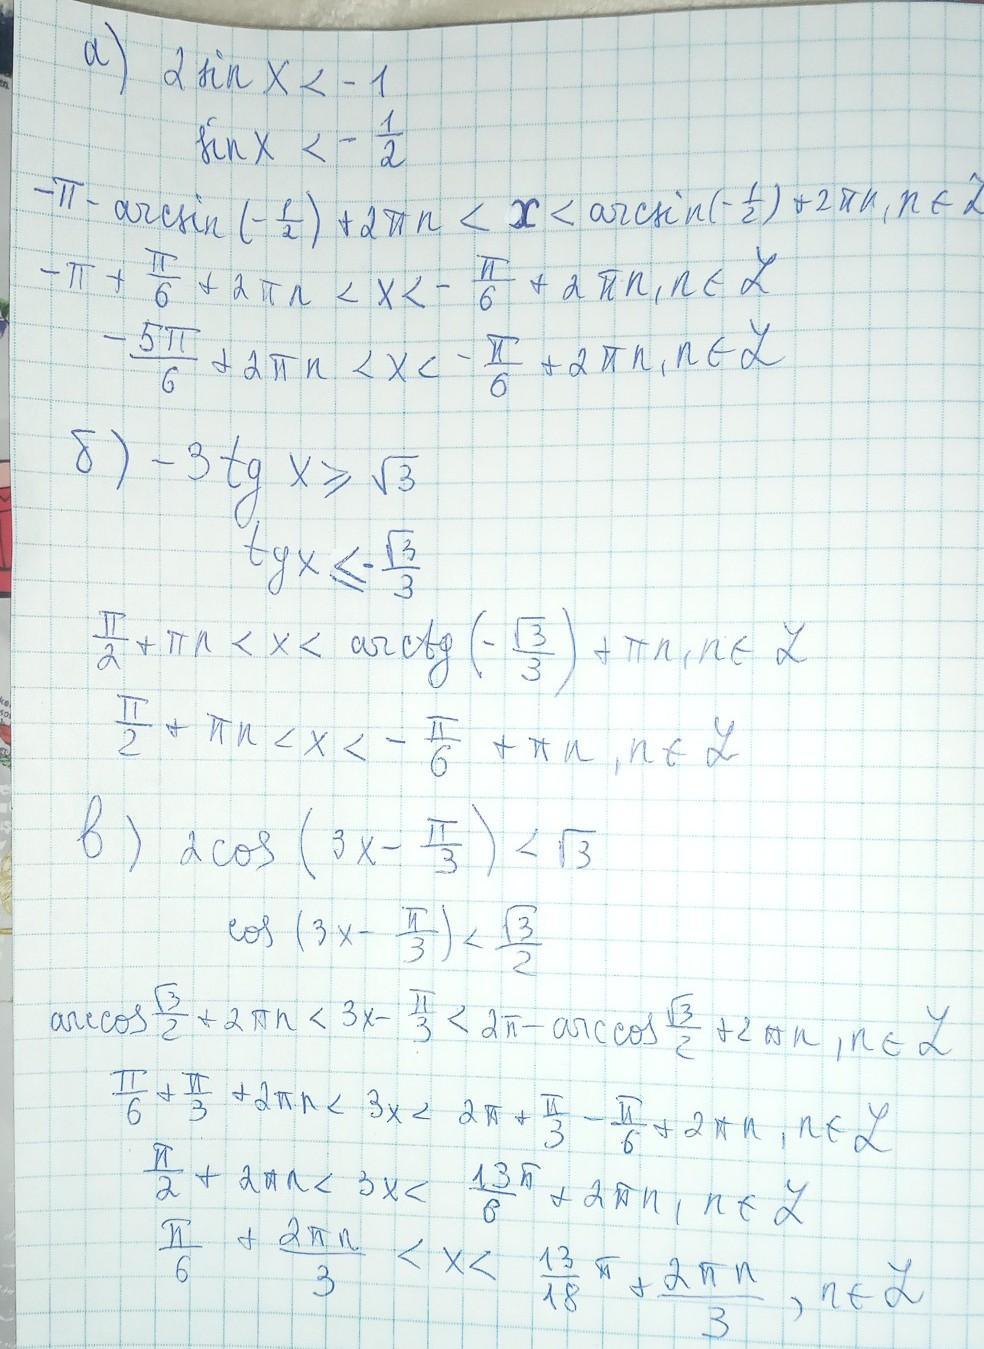 а) 2 sin x < - 1
sin x < - 1/2
-π - arcsin (- 1/2) + 2πn < x < arcsin (- 1/2) + 2πn, n ∈ Z
-π + π/6 + 2πn < x < - π/6 + 2πn, n ∈ Z
- 5π/6 + 2πn < x < - π/6 + 2πn, n ∈ Z
б) - 3 tg x ⩾ √3
tg x ⩽ - √3/3
π/2 + πn < x < arctg (- √3/3) + πn, n ∈ Z
π/2 + πn < x < - π/6 + πn, n ∈ Z
в) 2 cos (3x - π/3) < √3
cos (3x - π/3) < √3/2
arccos √3/2 + 2πn < 3x - π/3 < 2π - arccos √3/2 + 2πn, n ∈ Z
π/6 + π/3 + 2πn < 3x < 2π + π/3 - π/6 + 2πn, n ∈ Z
π/2 + 2πn < 3x < 13π/6 + 2πn, n ∈ Z
π/6 + 2πn/3 < x < 13/18 π + 2πn/3, n ∈ Z